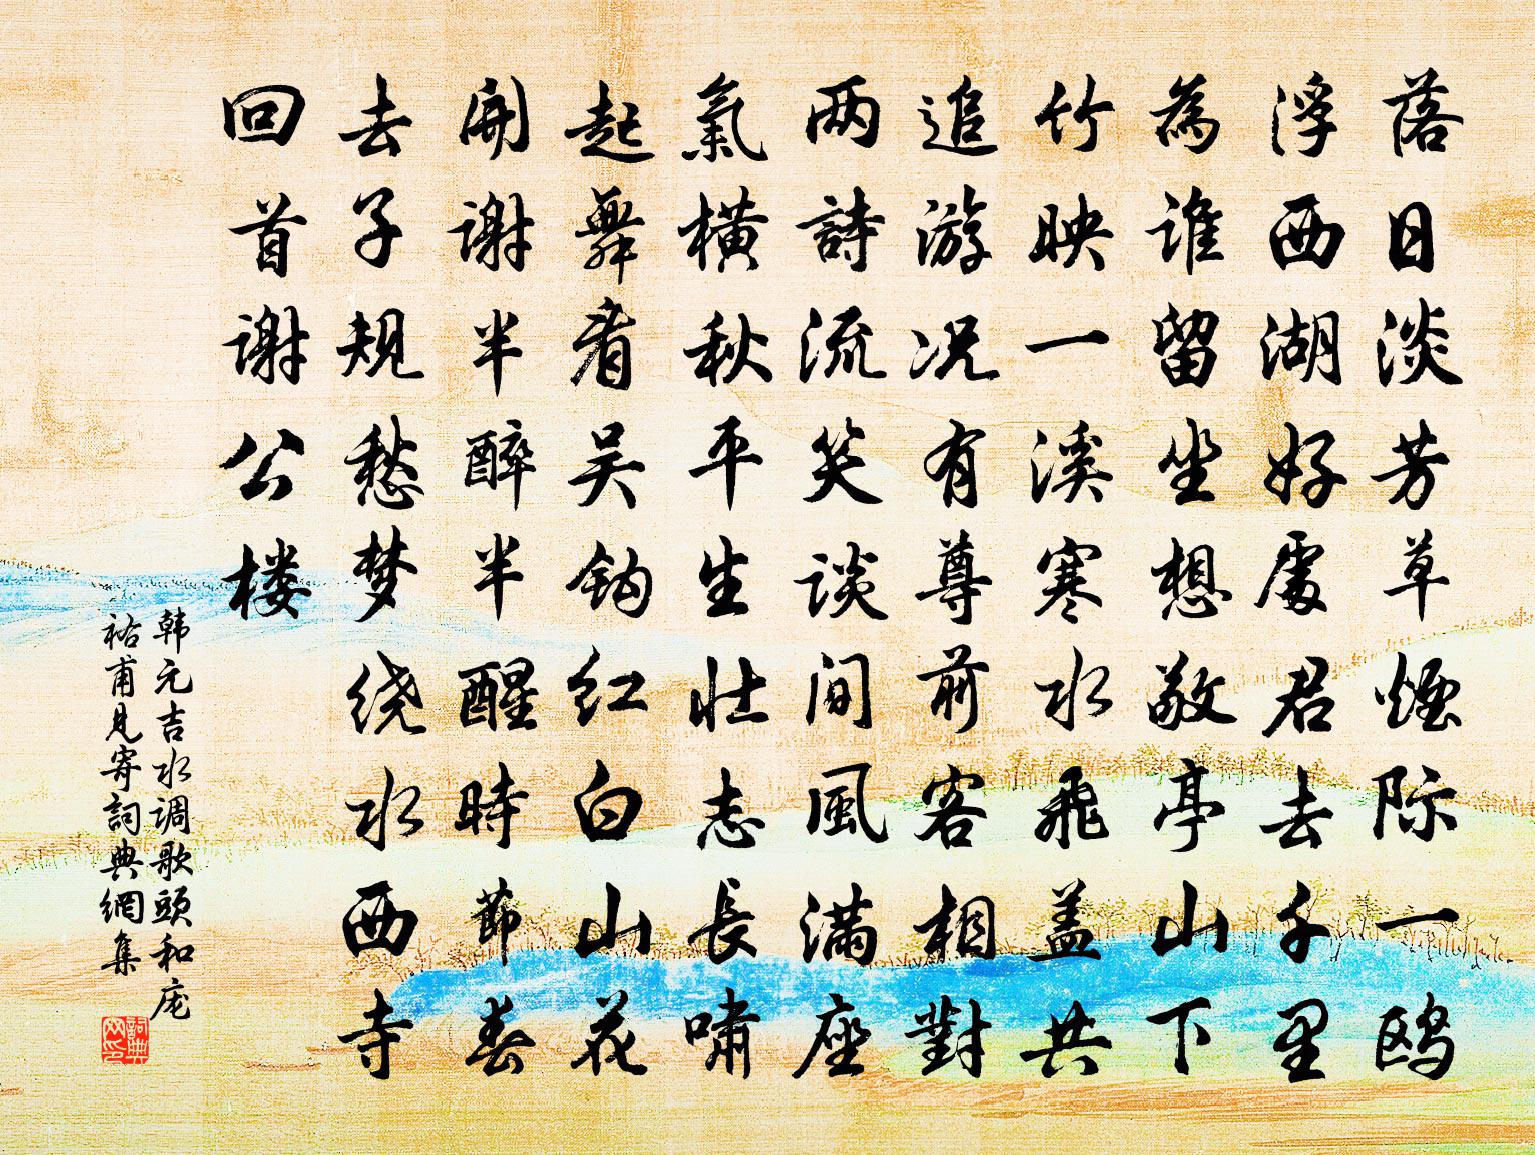 落日淡芳草煙际一鸥
浮西湖好處君去千里
為谁留坐想敬亭山下
竹映一溪寒水飛盖共
追游况有尊前客相對
两詩流笑谈间風满座
氣横秋平生壮志長啸
起舞看吴钩红白山花
開谢半醉半醒時節春
去子规愁梦绕水西寺
回首谢公楼
韩元吉水调歌頭和庞
祐甫見寄詞典網集
詞典網印